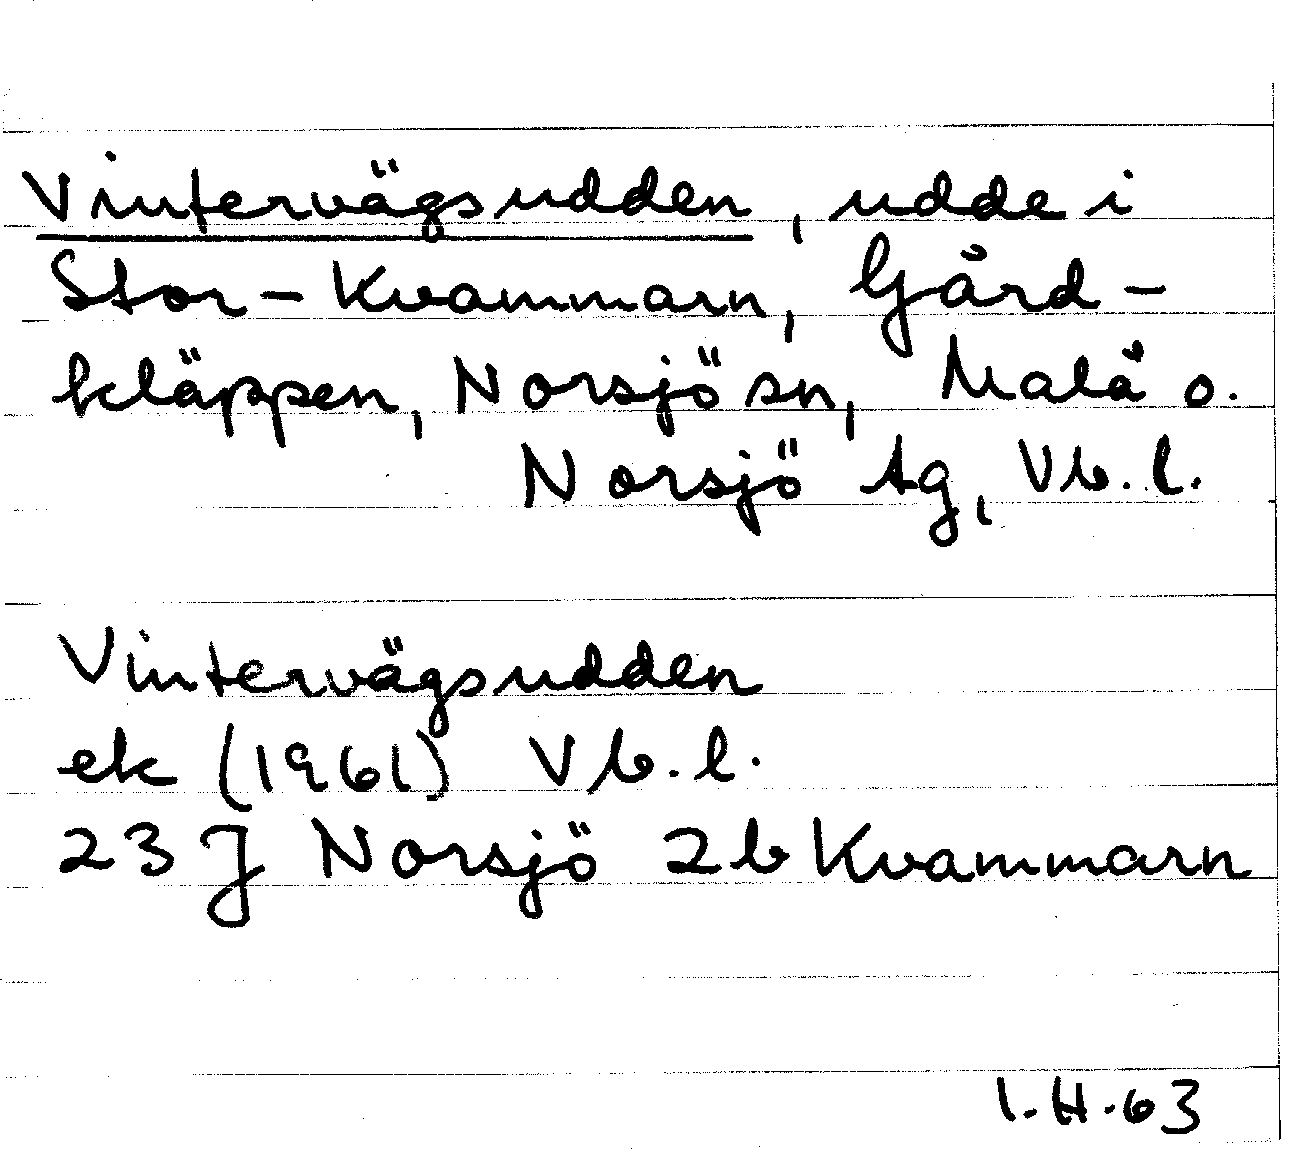 Vintervägsudden, udde i
Stor-Kvammarn, Gård-
kläppen, Norsjö sn, Malå o.
Norsjö tg, Vb.l.
Vintervägsudden
ek (1961) Vb.l.
23 J Norsjö 2b Kvammarn
I.H.63